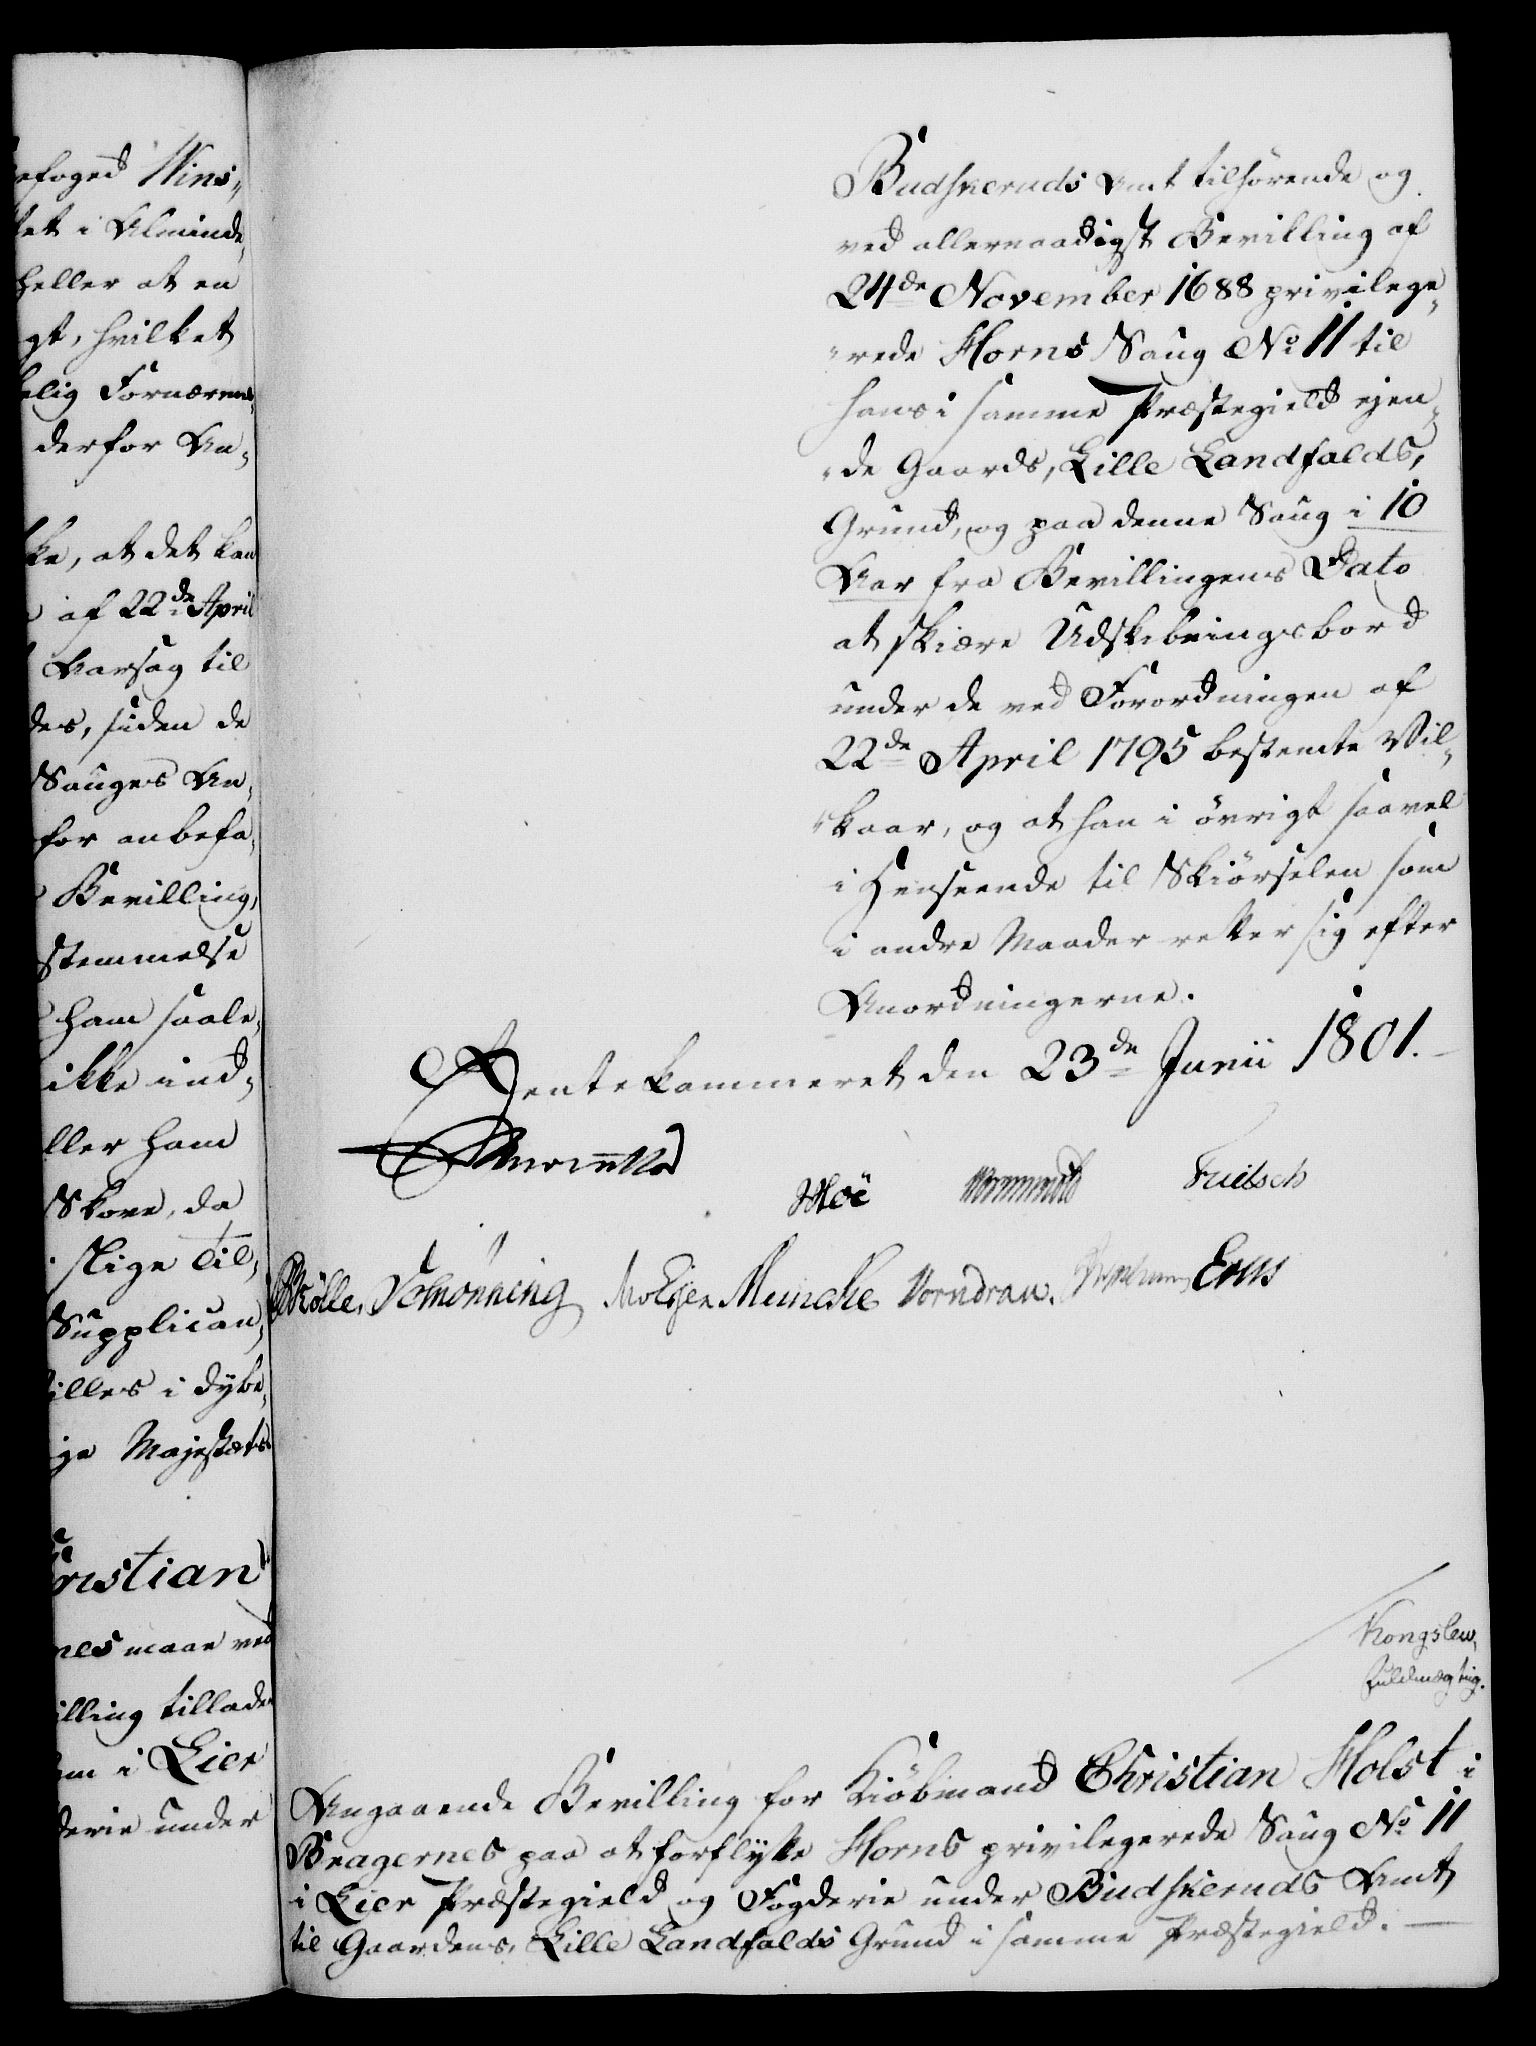 efoged Wins,,
tet i Alminde,,
heller at en
gt, hvilket
elig Fornærme,,
derfor An,,
ke, at det kan
af 22de April
Varsag til
des, siden de
Sauges An,,
for anbefa,,
Bevilling,
stemmelse
ham saale,,
ikke ind,,
ller ham
Skove, da
slige Til,,
Supplican,,
illes i dybe,,
ige Majestæts
ristian
nes maae ved
illing tillades
em i Lier
derie under
Budskeruds Amt tilhørende og
ved allernaadigst Bevilling af
24de November 1688 privilege,,
,,rede Horns Saug No 11 til
hans i samme Præstegield ejen,,
,,de Gaards, Lille Landfalds,
Grund, og paa denne Saug i 10
Aar fra Bevillingens Dato
at skiære Udskibningsbord
under de ved Forordningen af
22de April 1795 bestemte Vil,,
,,kaar, og at han i øvrigt saavel
i Henseende til Skiørselen som
i andre Maader retter sig efter
Anordningerne.
Rentekammeret den 23de Junii 1801.
Moë Wormskiold Fritsch
Schønning Meincke Vorndran.
Kongslew,
Fuldmægtig.
Angaaende Bevilling for Kiøbmand Christian Holst i
Bragernes paa at forflytte Horns privilegerede Saug No 11
i Lier Præstegield og Fogderie under Budskeruds Amt
til Gaardens, Lille Landfalds Grund i samme Præstegield.